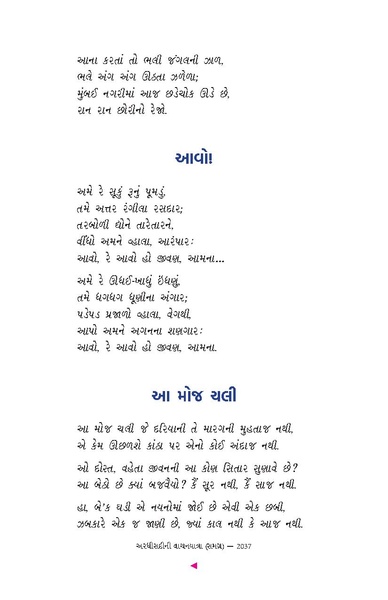 આના કરતાં તો ભલી જંગલની ઝાળ,
ભલે અંગ અંગ ઊઠતા ઝળેળા;
મુંબઈ નગરીમાં આજ છડેચોક ઊડે છે,
રાન રાન છોરીનો રેજો.
આવો!
અમે રે સૂકું રૂનું પૂમડું,
તમે અત્તર રંગીલા રસદાર;
તરબોળી દ્યોને તારેતારને,
વીંધો અમને વ્હાલા, આરંપાર:
આવો, રે આવો હો જીવણ, આમના...
અમે રે ઊધઈ-ખાધું ઇંધણું,
તમે ધગધગ ધૂણીના અંગાર;
પડેપડ પ્રજાળો વ્હાલા, વેગથી,
આપો અમને અગનના શણગાર:
આવો, રે આવો હો જીવણ, આમના.
આ મોજ ચલી
આ મોજ ચલી જે દરિયાની તે મારગની મુહતાજ નથી,
એ કેમ ઊછળશે કાંઠા પર એનો કોઈ અંદાજ નથી.
ઓ દોસ્ત, વહેતા જીવનની આ કોણ સિતાર સુણાવે છે?
આ બેઠો છે ક્યાં બજવૈયો? કૈં સૂર નથી, કૈં સાજ નથી.
હા, બે'ક ઘડી એ નયનોમાં જોઈ છે એવી એક છબી,
ઝબકારે એક જ જાણી છે, જ્યાં કાલ નથી કે આજ નથી.
અરધીસદીની વાચનયાત્રા (સમગ્ર) — 2037